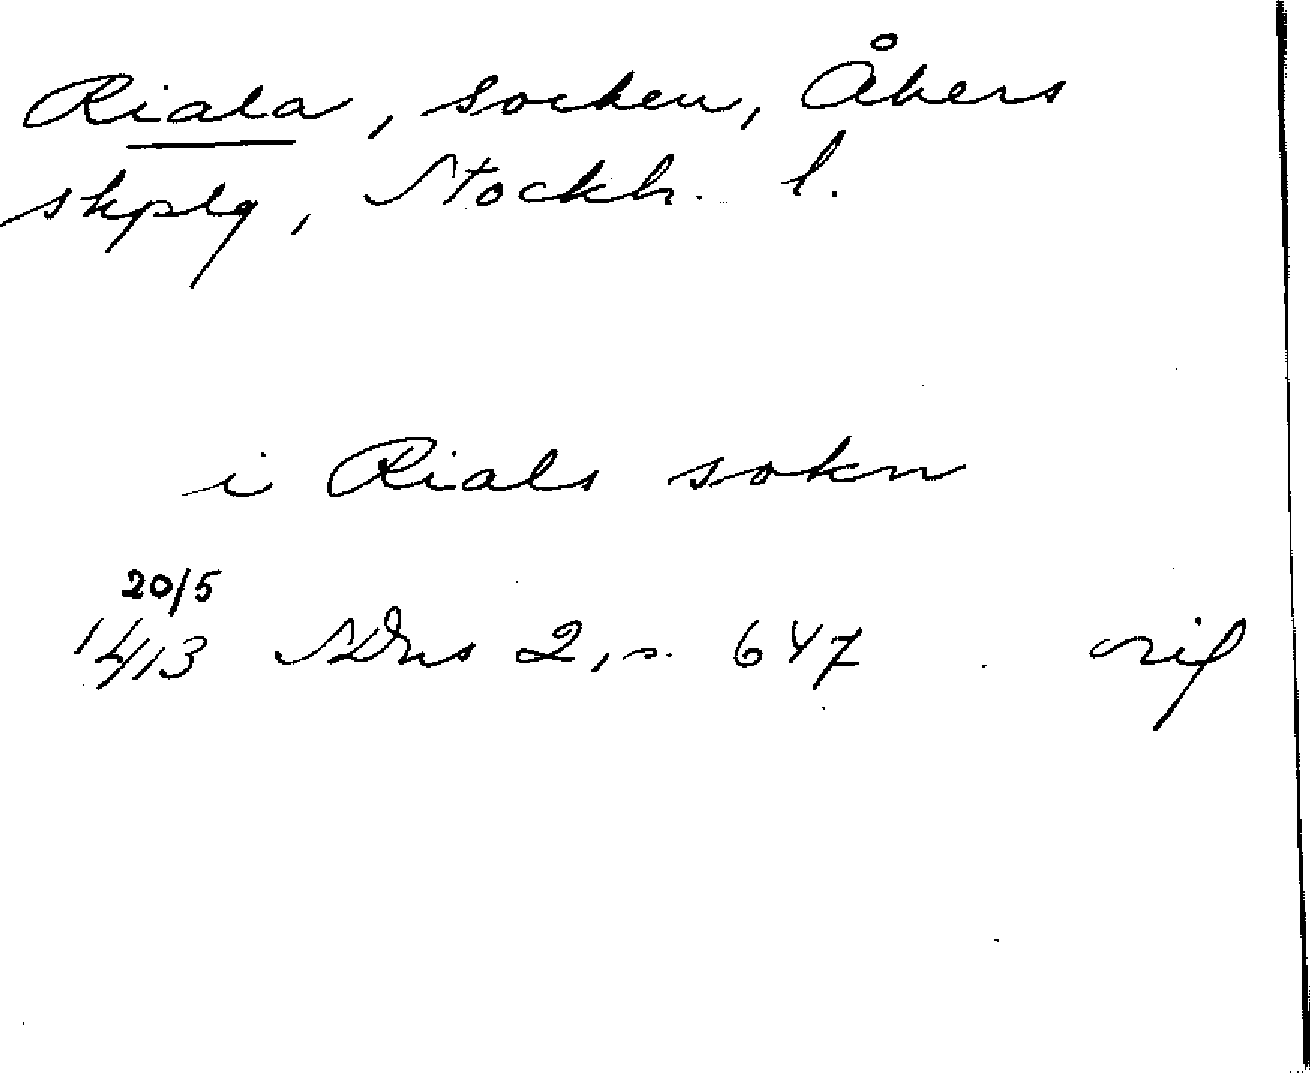 Riala, socken, Åkers
skplg, Stockh. l.
i Rials sokn
20/5
1413 SDns 2, s. 647 orig